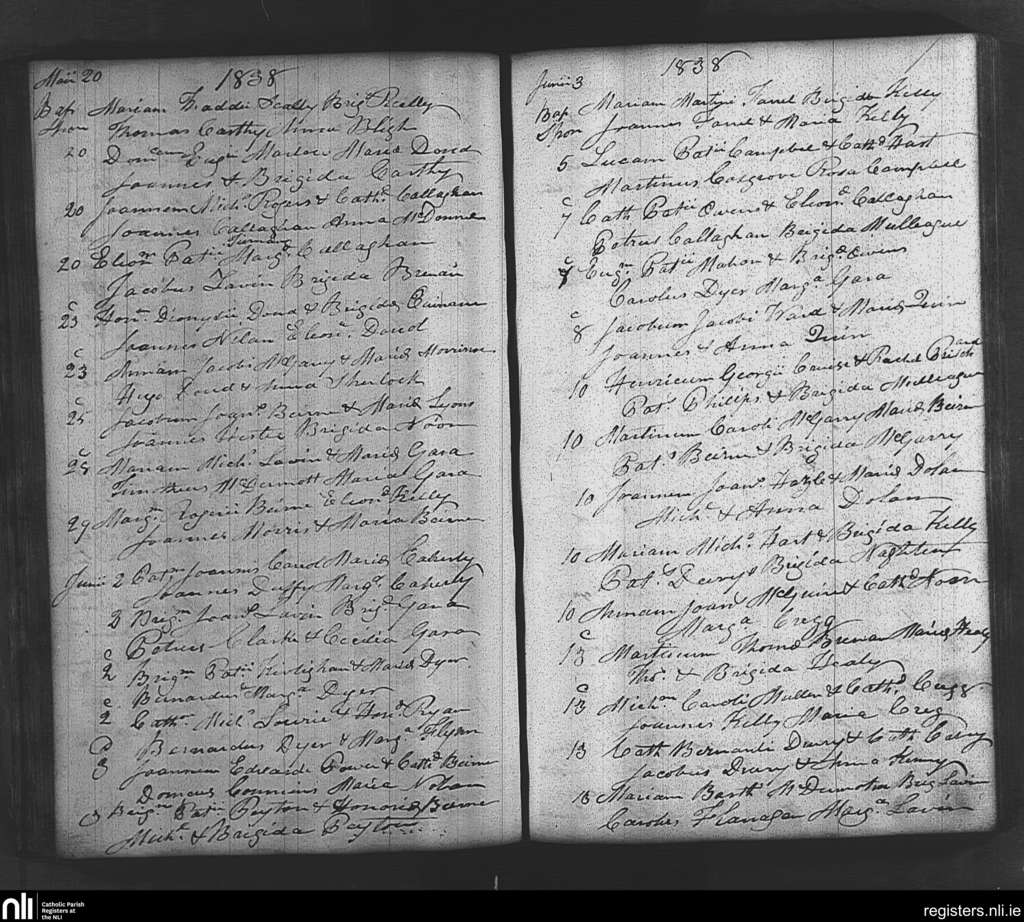 Maii 20 1838
Bap Mariam Thaddei Scally Brigd Reilly
Spon Thomas Carthy Anna Bligh
20 Domcum Eugii Maria Dowd
Joannes & Brigida Carthy
20 Joannem Michl Rogers & Cathe Callaghan
Joannes Callaghan Anna McDonne
20 Eleonm Patii Margt Callaghan
Jacobus Lavin Brigida Brenan
C 23 Honm Dionysii Doud & Brigidæ
Joannes Nelan Eleonr Doud
C 23 Annam Jacobi McGary & Mariæ Morrison
Hugo Doud & Anna Sherlock
C 25 Jacobum Joans Beirne & Mariæ Lyons
Joannes Brigida Noon
C 28 Mariam Michl Lavin & Mariæ Gara
Timotheus McDermott Maria Gara
29 Margm Rogerii Beirne Eleonr Kelly
Joannes Morris & Maria Beirne
Junii 2 Patm Joannis Mariæ Caherty
Joannes Duffy Margt Caherty
3 Brigm Joans Lavin Brigd Gara
Petrus Clarke & Cecilia Gara
C 2 Brigm Patii & Mariæ Dyer
Bernardus Marga Dyer
C 2 Cathm Michl & Honr Ryan
Bernardus Dyer & Marga Flynn
C 3 Joannem Edwardi Power & Cathe Beirne
Domcus Maria Nolan
3 Brigm Patii Peyton & Honoriæ Beirne
Michl & Brigida Peyton
Junii 3 1838
Bap Mariam Martini Farrel Brigidæ Kelly
Spon Joannes Farrel & Maria Kelly
5 Lucam Patii Campbel & Cathe Hart
Martinus Cosgrove Rosa Campbell
C 7 Cath Patii Owens & Eleonr Callaghan
Petrus Callaghan Brigida Mulleague
C 7 Eugm Patii Mahon & Brigd Owens
Carolus Dyer Marga Gara
C 8 Jacobum Jacobi Ward & Mariæ Quin
Joannes & Anna Quin
10 Henricum Georgii & Rachel
Pats Philips & Brigida Mulleague
10 Martinum Caroli McGarry Mariæ Beirn
Pats Beirne & Brigida McGarry
10 Joannem Joans & Mariæ Dolan
Michl & Anna Dolan
10 Mariam Michl Hart & Brigida Kelly
Pats Drury & Brigida Naghten
10 Annam Joans McGuire & Cathe Noon
Marga Cregg
C 13 Thomæ Brenan Mariæ Healy
Ths & Brigida Healy
C 13 Michm Caroli Mullen & Cathe Cregg
Joannes Kelly Maria Creg
13 Cath Bernardi Drury & Cath
Jacobus Drury & Anna Kenny
13 Mariam Barthi McDermott Brig Lavin
Carolus Flanagan Marga Lavin
nli Catholic Parish
Registers at
the NLI
registers.nli.ie